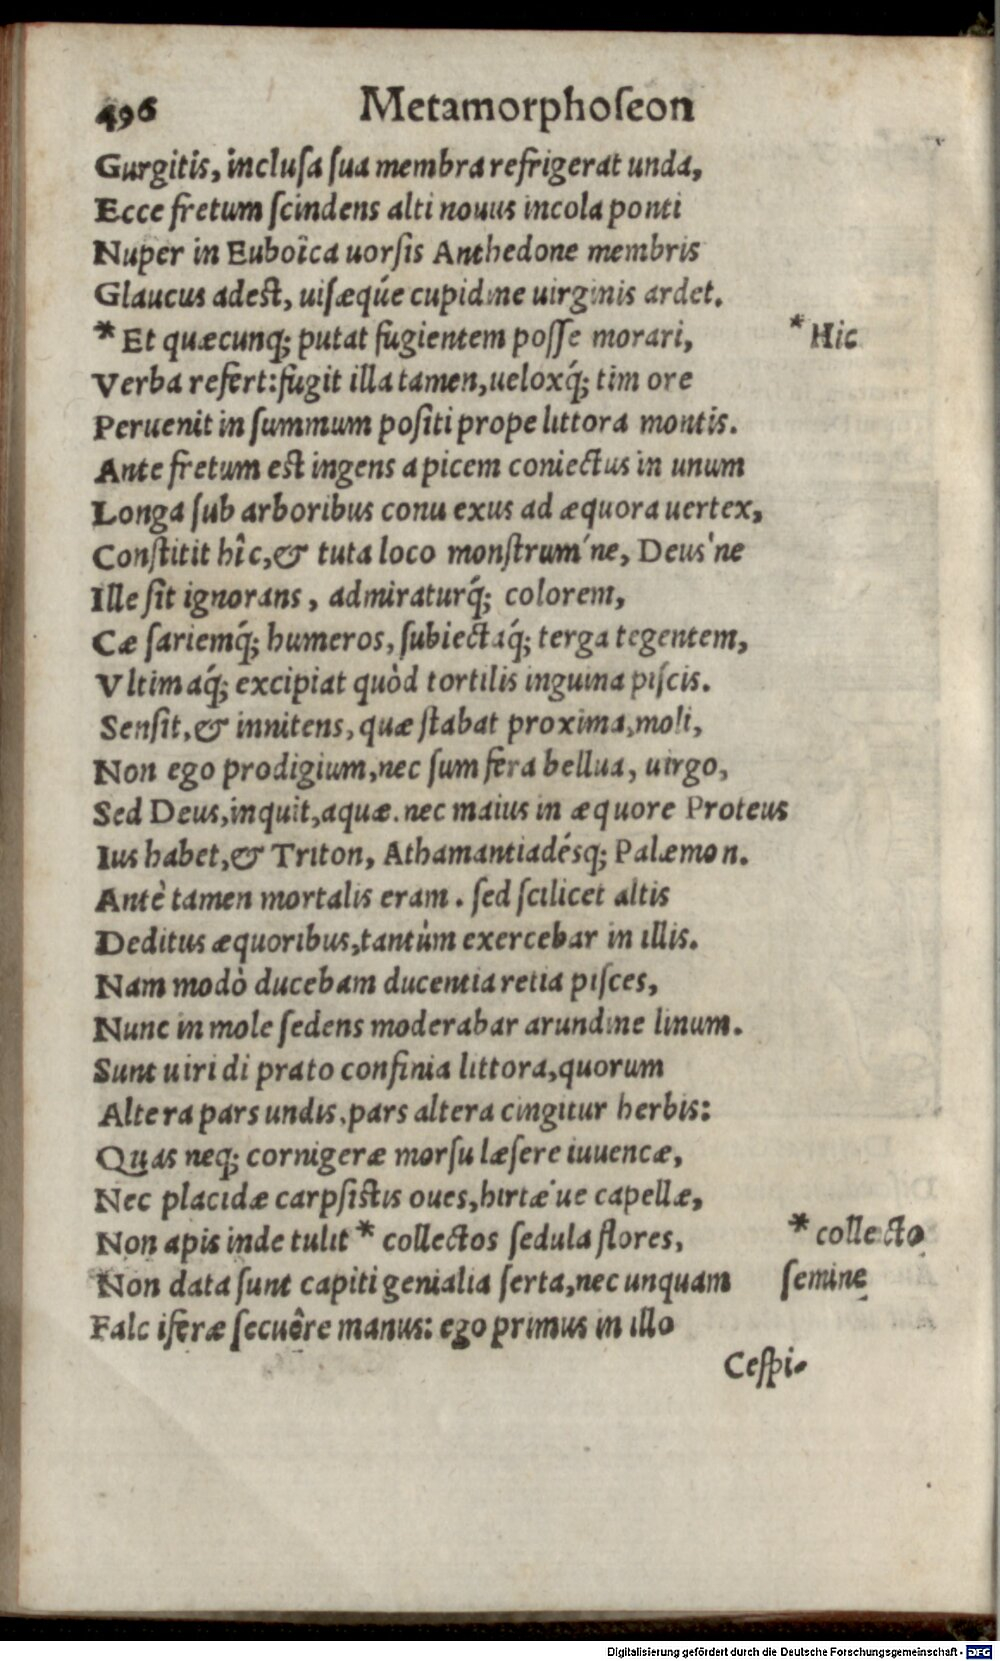 496 Metamorphoſeon
Gurgitis, incluſa ſua membra refrigerat unda,
Ecce fretum ſcindens alti nouus incola ponti
Nuper in Euboîca uorſis Anthedone membris
Glaucus adest, uiſæq́ue cupidine uirginis ardet.
* Et quæcunq; putat fugientem poſſe morari, * Hic
Verba refert: fugit illa tamen, ueloxq́; timore
Peruenit in ſummum poſiti prope littora montis.
Ante fretum est ingens apicem coniectus in unum
Longa ſub arboribus conuexus ad æquora uertex,
Conſtitit hîc, & tuta loco monſtrum'ne, Deus'ne
Ille ſit ignorans, admiraturq́; colorem,
Cæſariemq́; humeros, ſubiectaq́; terga tegentem,
Vltimaq́; excipiat quòd tortilis inguina piſcis.
Senſit, & innitens, quæ ſtabat proxima, moli,
Non ego prodigium, nec ſum fera bellua, uirgo,
Sed Deus, inquit, aquæ. nec maius in æquore Proteus
Ius habet, & Triton, Athamantiadésq; Palæmon.
Antè tamen mortalis eram. ſed ſcilicet altis
Deditus æquoribus, tantùm exercebar in illis.
Nam modò ducebam ducentia retia piſces,
Nunc in mole ſedens moderabar arundine linum.
Sunt uiridi prato confinia littora, quorum
Altera pars undis, pars altera cingitur herbis:
Quas neq; cornigeræ morſu læſere iuuencæ,
Nec placidæ carpſistis oues, hirtæ'ue capellæ,
Non apis inde tulit * collectos ſedula flores, * collecto
Non data ſunt capiti genialia ſerta, nec unquam ſemine
Falciferæ ſecuêre manus: ego primus in illo
Ceſpi-
Digitalisierung gefördert durch die Deutsche Forschungsgemeinschaft - DFG